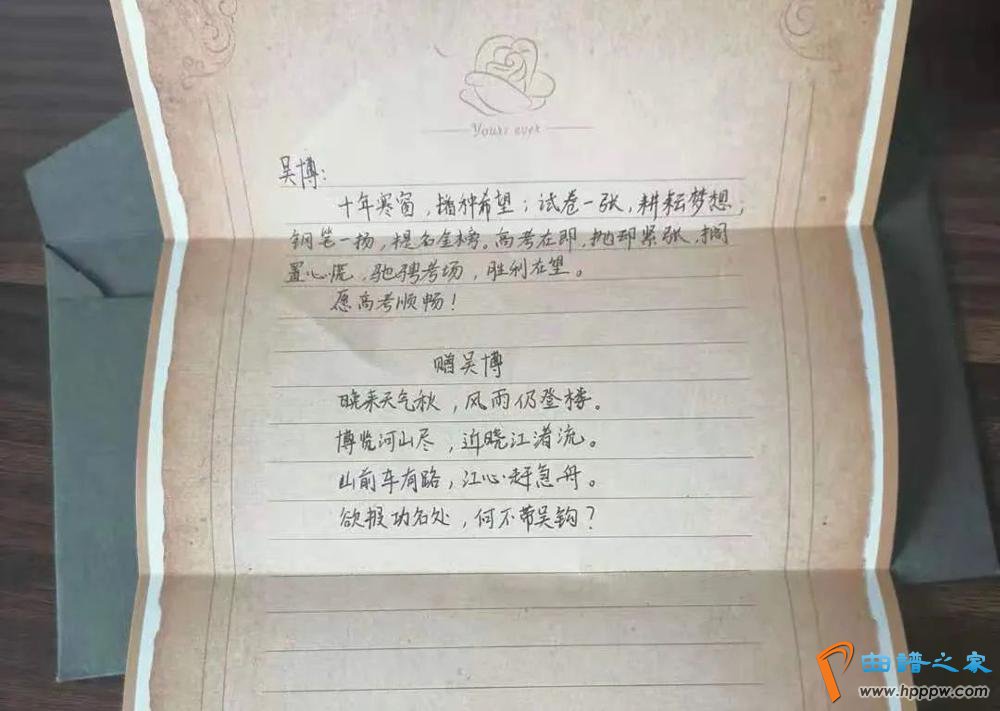 Yours ever
吴博：
十年寒窗，播种希望；试卷一张，耕耘梦想；
钢笔一扬，提名金榜。高考在即，抛却紧张，搁
置心慌，驰骋考场，胜利在望。
愿高考顺畅！
赠吴博
晚来天气秋，风雨仍登楼。
博览河山尽，近晓江渚流。
山前车有路，江心赶急舟。
欲报功名处，何不带吴钩？
曲谱之家
www.hpppw.com